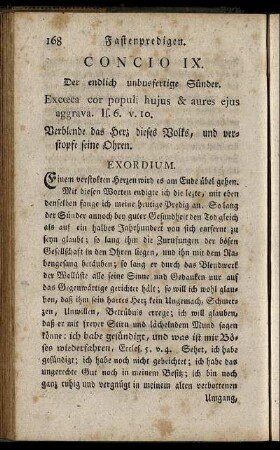 168 Fastenpredigen.
CONCIO IX.
Der endlich unbußfertige Sünder.
Excœca cor populi hujus & aures ejus
aggrava. Is. 6. v. 10.
Verblende das Herz dieses Volks, und ver-
stopfe seine Ohren.
EXORDIUM.
Einem verstokten Herzen wird es am Ende übel gehen.
Mit diesen Worten endigte ich die lezte, mit eben
denselben fange ich meine heutige Predig an. So lang
der Sünder annoch bey guter Gesundheit den Tod gleich
als auf ein halbes Jahrhundert von sich entfernt zu
seyn glaubt; so lang ihm die Zurufungen der bösen
Gesellschaft in den Ohren liegen, und ihn mit dem Ra-
bengesang bezäuben; so lang er durch das Blendwerk
der Wollüste alle seine Sinne und Gedanken nur auf
das Gegenwärtige gerichtet hält; so will ich wohl glau-
ben, daß ihm sein hartes Herz kein Ungemach, Schmer-
zen, Unwillen, Betrübniß errege; ich will glauben,
daß er mit freyer Stirn und lächelndem Mund sagen
könne: ich habe gesündigt, und was ist mir Bö-
ses wiederfahren, Eccles. 5. v. 4. Sehet, ich habe
gesündigt; ich habe noch nicht gebeichtet; ich habe das
ungerechte Gut noch in meinem Besitz; ich bin noch
ganz ruhig und vergnügt in meinem alten verbottenen
Umgang,